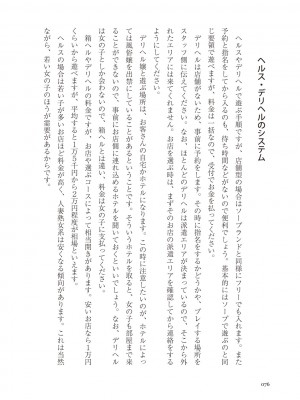 ヘルス・デリヘルのシステム
ヘルスやデリヘルで遊ぶ手順ですが、店舗型の場合はソープランドと同様にフリーでも入れます。また
予約と指名をしてから入るのも、待ち時間などがないので便利でしょう。基本的にはソープで遊ぶのと同
じ要領で遊べますが、料金は一括なので、受付でお金を払ってください。
デリヘルは店舗がないため、事前に予約をします。その時に指名をするかどうかや、プレイする場所を
スタッフ側に伝えてください。なお、ほとんどのデリヘルは派遣エリアが決まっているので、そこから外
れたエリアには来てくれません。お店を選ぶ時は、まずそのお店の派遣エリアを確認してから連絡をする
ようにしてください。
デリヘル嬢と遊ぶ場所は、お客さんの自宅かホテルになります。この時に注意したいのが、ホテルによっ
ては風俗嬢を出禁にしていることがあるということです。そういうホテルを取ると、女の子も部屋まで来
ることができないので、事前にお店側に連れ込めるホテルを聞いておくといいでしょう。なお、デリヘル
は女の子としか会わないので、箱ヘルとは違い、料金は女の子に支払ってください。
箱ヘルやデリヘルの料金ですが、お店や選ぶコースによって相当開きがあります。安いお店なら1万円
くらいから遊べますが、平均すると1万5千円から2万円程度が相場といえます。
ヘルスの場合は若い子が多いお店ほど料金が高く、人妻熟女系は安くなる傾向があります。これは当然
ながら、若い女の子のほうが需要があるからです。
076